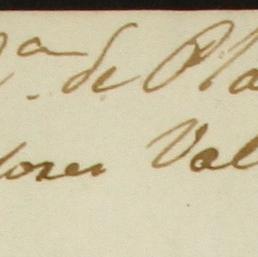 ª de Pla
lores Val